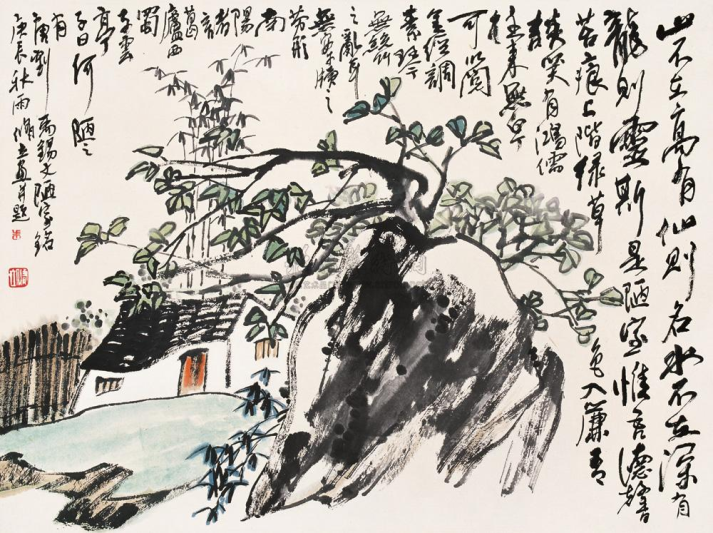 山不在高有仙則名水不在深有
龍則靈斯是陋室惟吾德馨
苔痕上階綠草
色入簾青
談笑有鴻儒
往來無白丁
可以閱
金經調
素琴
無絲竹
之亂耳
無案牘之
勞形
南
陽諸
葛
廬西
蜀
子雲
亭
子曰何陋之
有
唐劉禹錫文陋室銘
庚辰秋雨畫并題